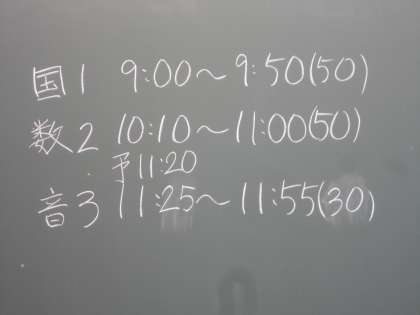 国1 9:00～9:50(50)
数2 10:10～11:00(50)
予11:20
音3 11:25～11:55(30)